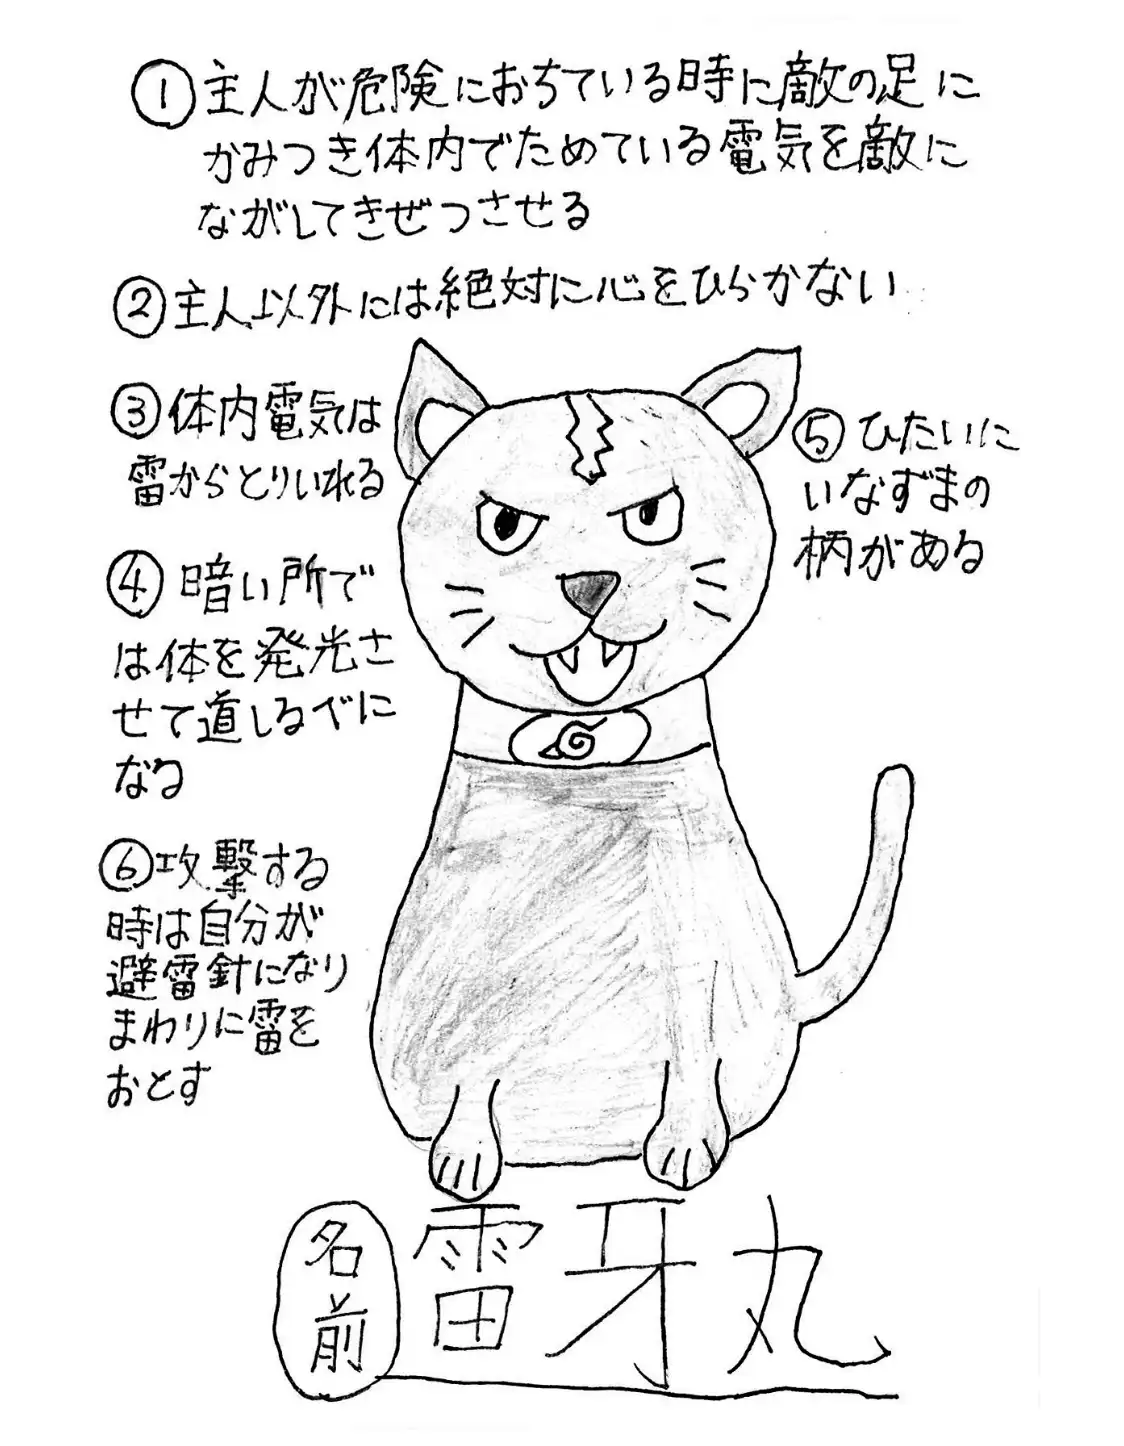 ①主人が危険におちている時に敵の足に
かみつき体内でためている電気を敵に
ながしてきぜつさせる
②主人以外には絶対に心をひらかない
③体内電気は
雷からとりいれる
④暗い所で
は体を発光さ
せて道しるべに
なる
⑤ひたいに
いなずまの
柄がある
⑥攻撃する
時は自分が
避雷針になり
まわりに雷を
おとす
名前
雷牙丸